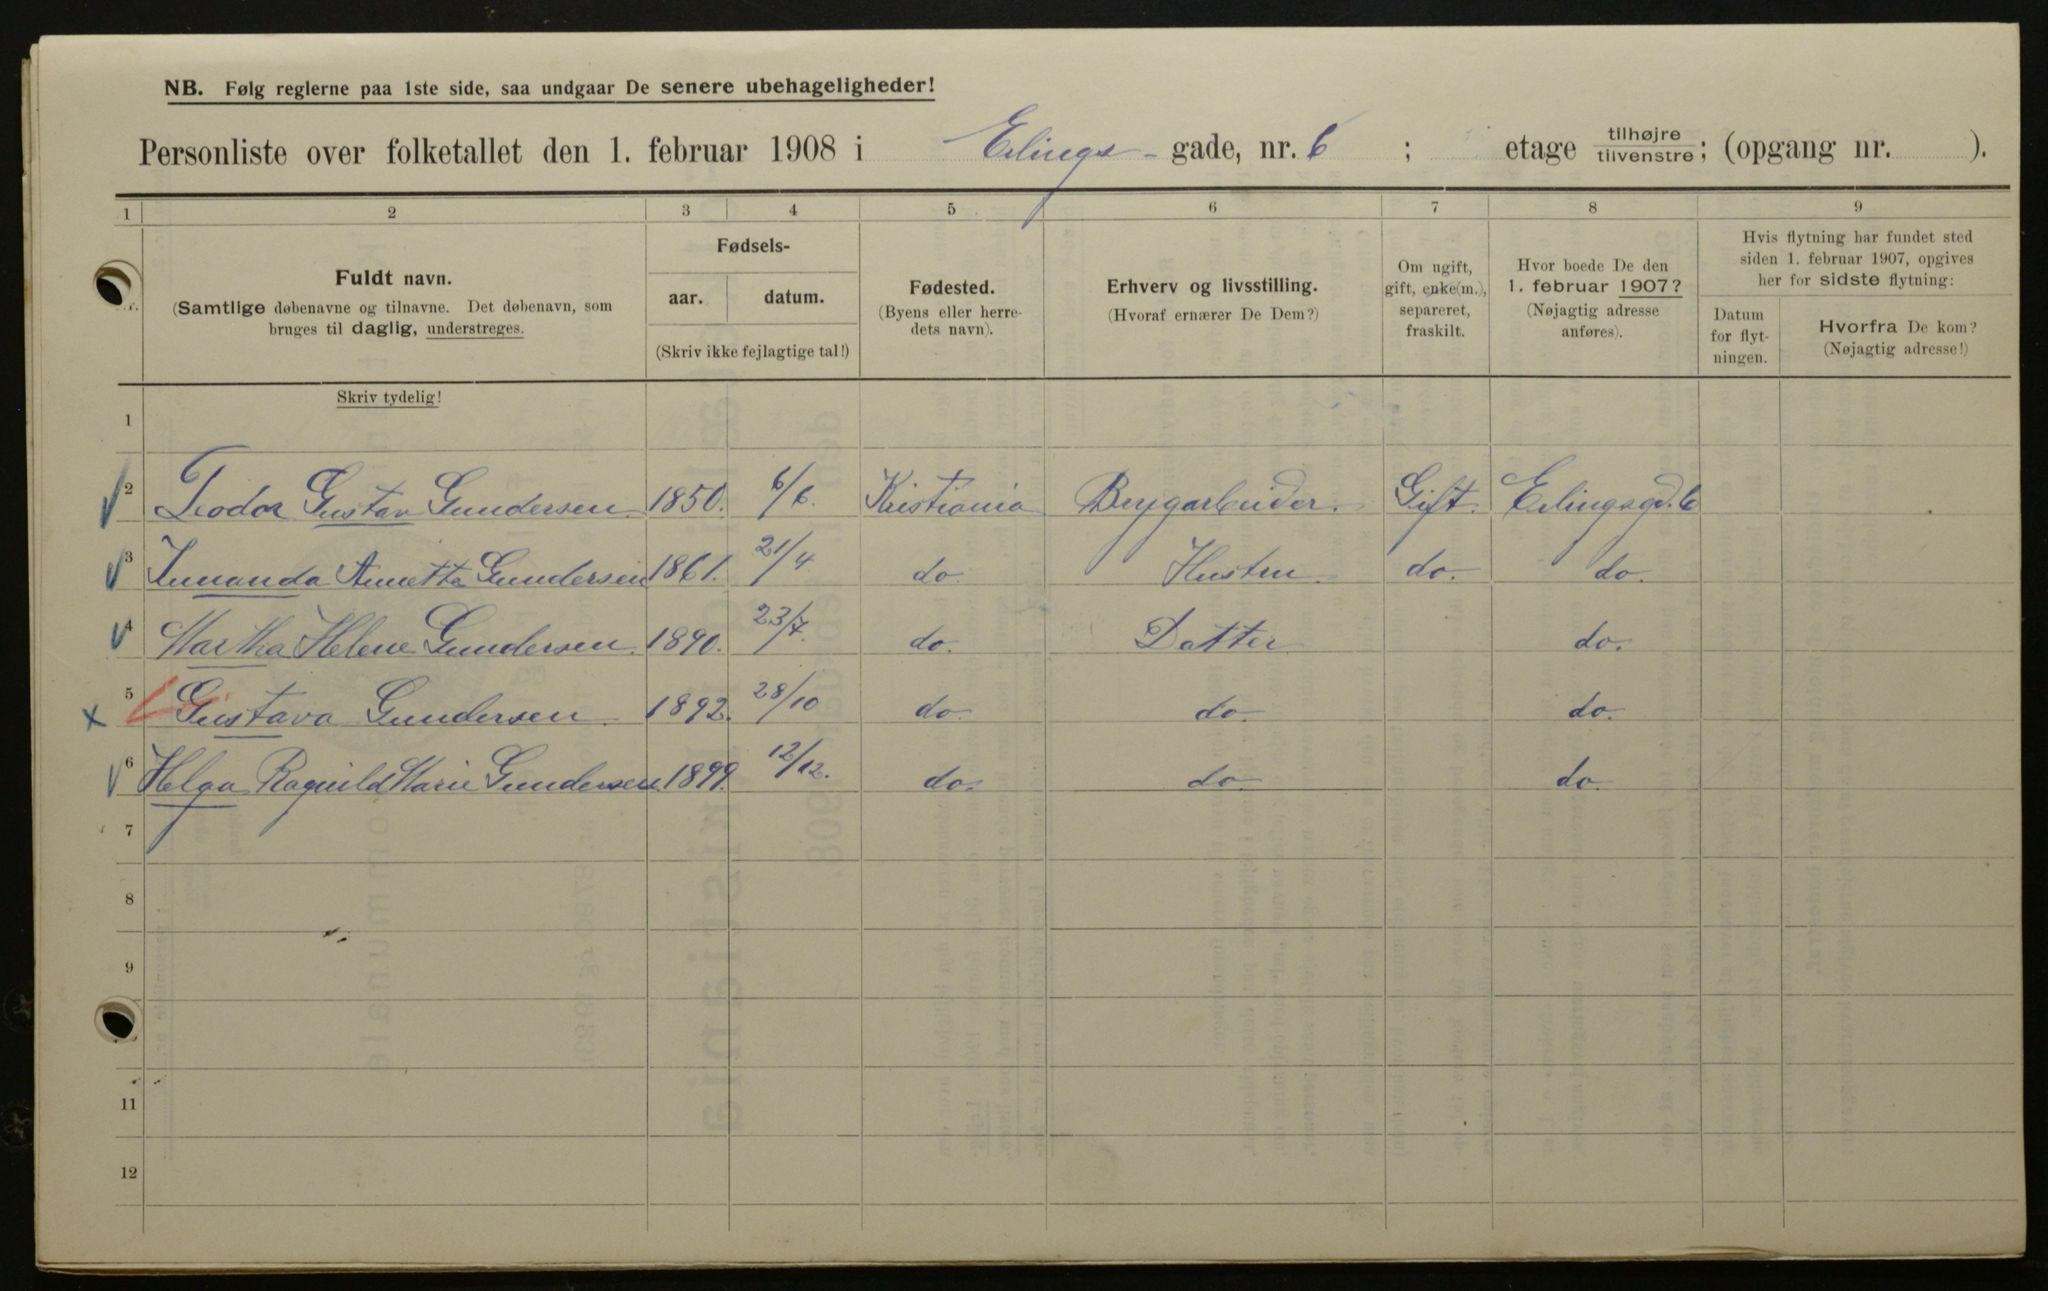 NB. Følg reglerne paa 1ste side, saa undgaar De senere ubehageligheder!
Personliste over folketallet den 1. februar 1908 i Erlings- gade, nr. 6 ; etage tilhøjre/tilvenstre; (opgang nr. ).
1 2 3 4 5 6 7 8 9
Fuldt navn. (Samtlige døbenavne og tilnavne. Det døbenavn, som bruges til daglig, understreges.
Fødsels- aar. datum. (Skriv ikke fejlagtige tal!)
Fødested. (Byens eller herredets navn).
Erhverv og livsstilling. (Hvoraf ernærer De Dem?)
Om ugift, gift, enke(m.), separeret, fraskilt.
Hvor boede De den 1. februar 1907? (Nøjagtig adresse anføres).
Hvis flytning har fundet sted siden 1. februar 1907, opgives her for sidste flytning:
Datum for flytningen.
Hvorfra De kom? (Nøjagtig adresse!)
Skriv tydelig!
1
2 Teodor Gustav Gundersen 1850. 6/6. Kristiania Bryggarbeider. Gift. Erlingsgd. 6
3 Annette Gundersen 1861. 21/4 do. Hustru do. do.
4 Martha Helene Gundersen. 1890. 23/7. do. Datter do.
5 Gustava Gundersen. 1892. 28/10 do. do. do.
6 Helga Ragnild Marie Gundersen. 1899. 12/12. do. do. do.
7
8
9
11
12